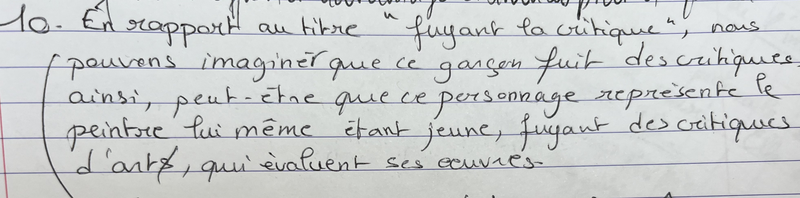 10. En rapport au titre "fuyant la critique", nous
pouvons imaginer que ce garçon fuit des critiques.
ainsi, peut-être que ce personnage représente le
peintre lui même étant jeune, fuyant des critiques
d'art, qui évaluent ses oeuvres.